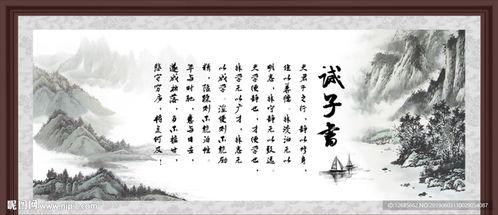 诫子書
夫君子之行，静以修身，
俭以养德。非淡泊无以
明志，非宁静无以致远。
夫学须静也，才须学也，
非学无以广才，非志无
以成学。淫慢则不能励
精，险躁则不能治性。
年与时驰，意与日去，
遂成枯落，多不接世，
悲守穷庐，将复何及！
昵图网
www.nipic.com